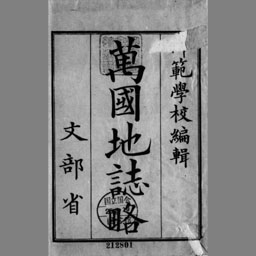 範學校編輯
萬國地誌略
文部省
212801